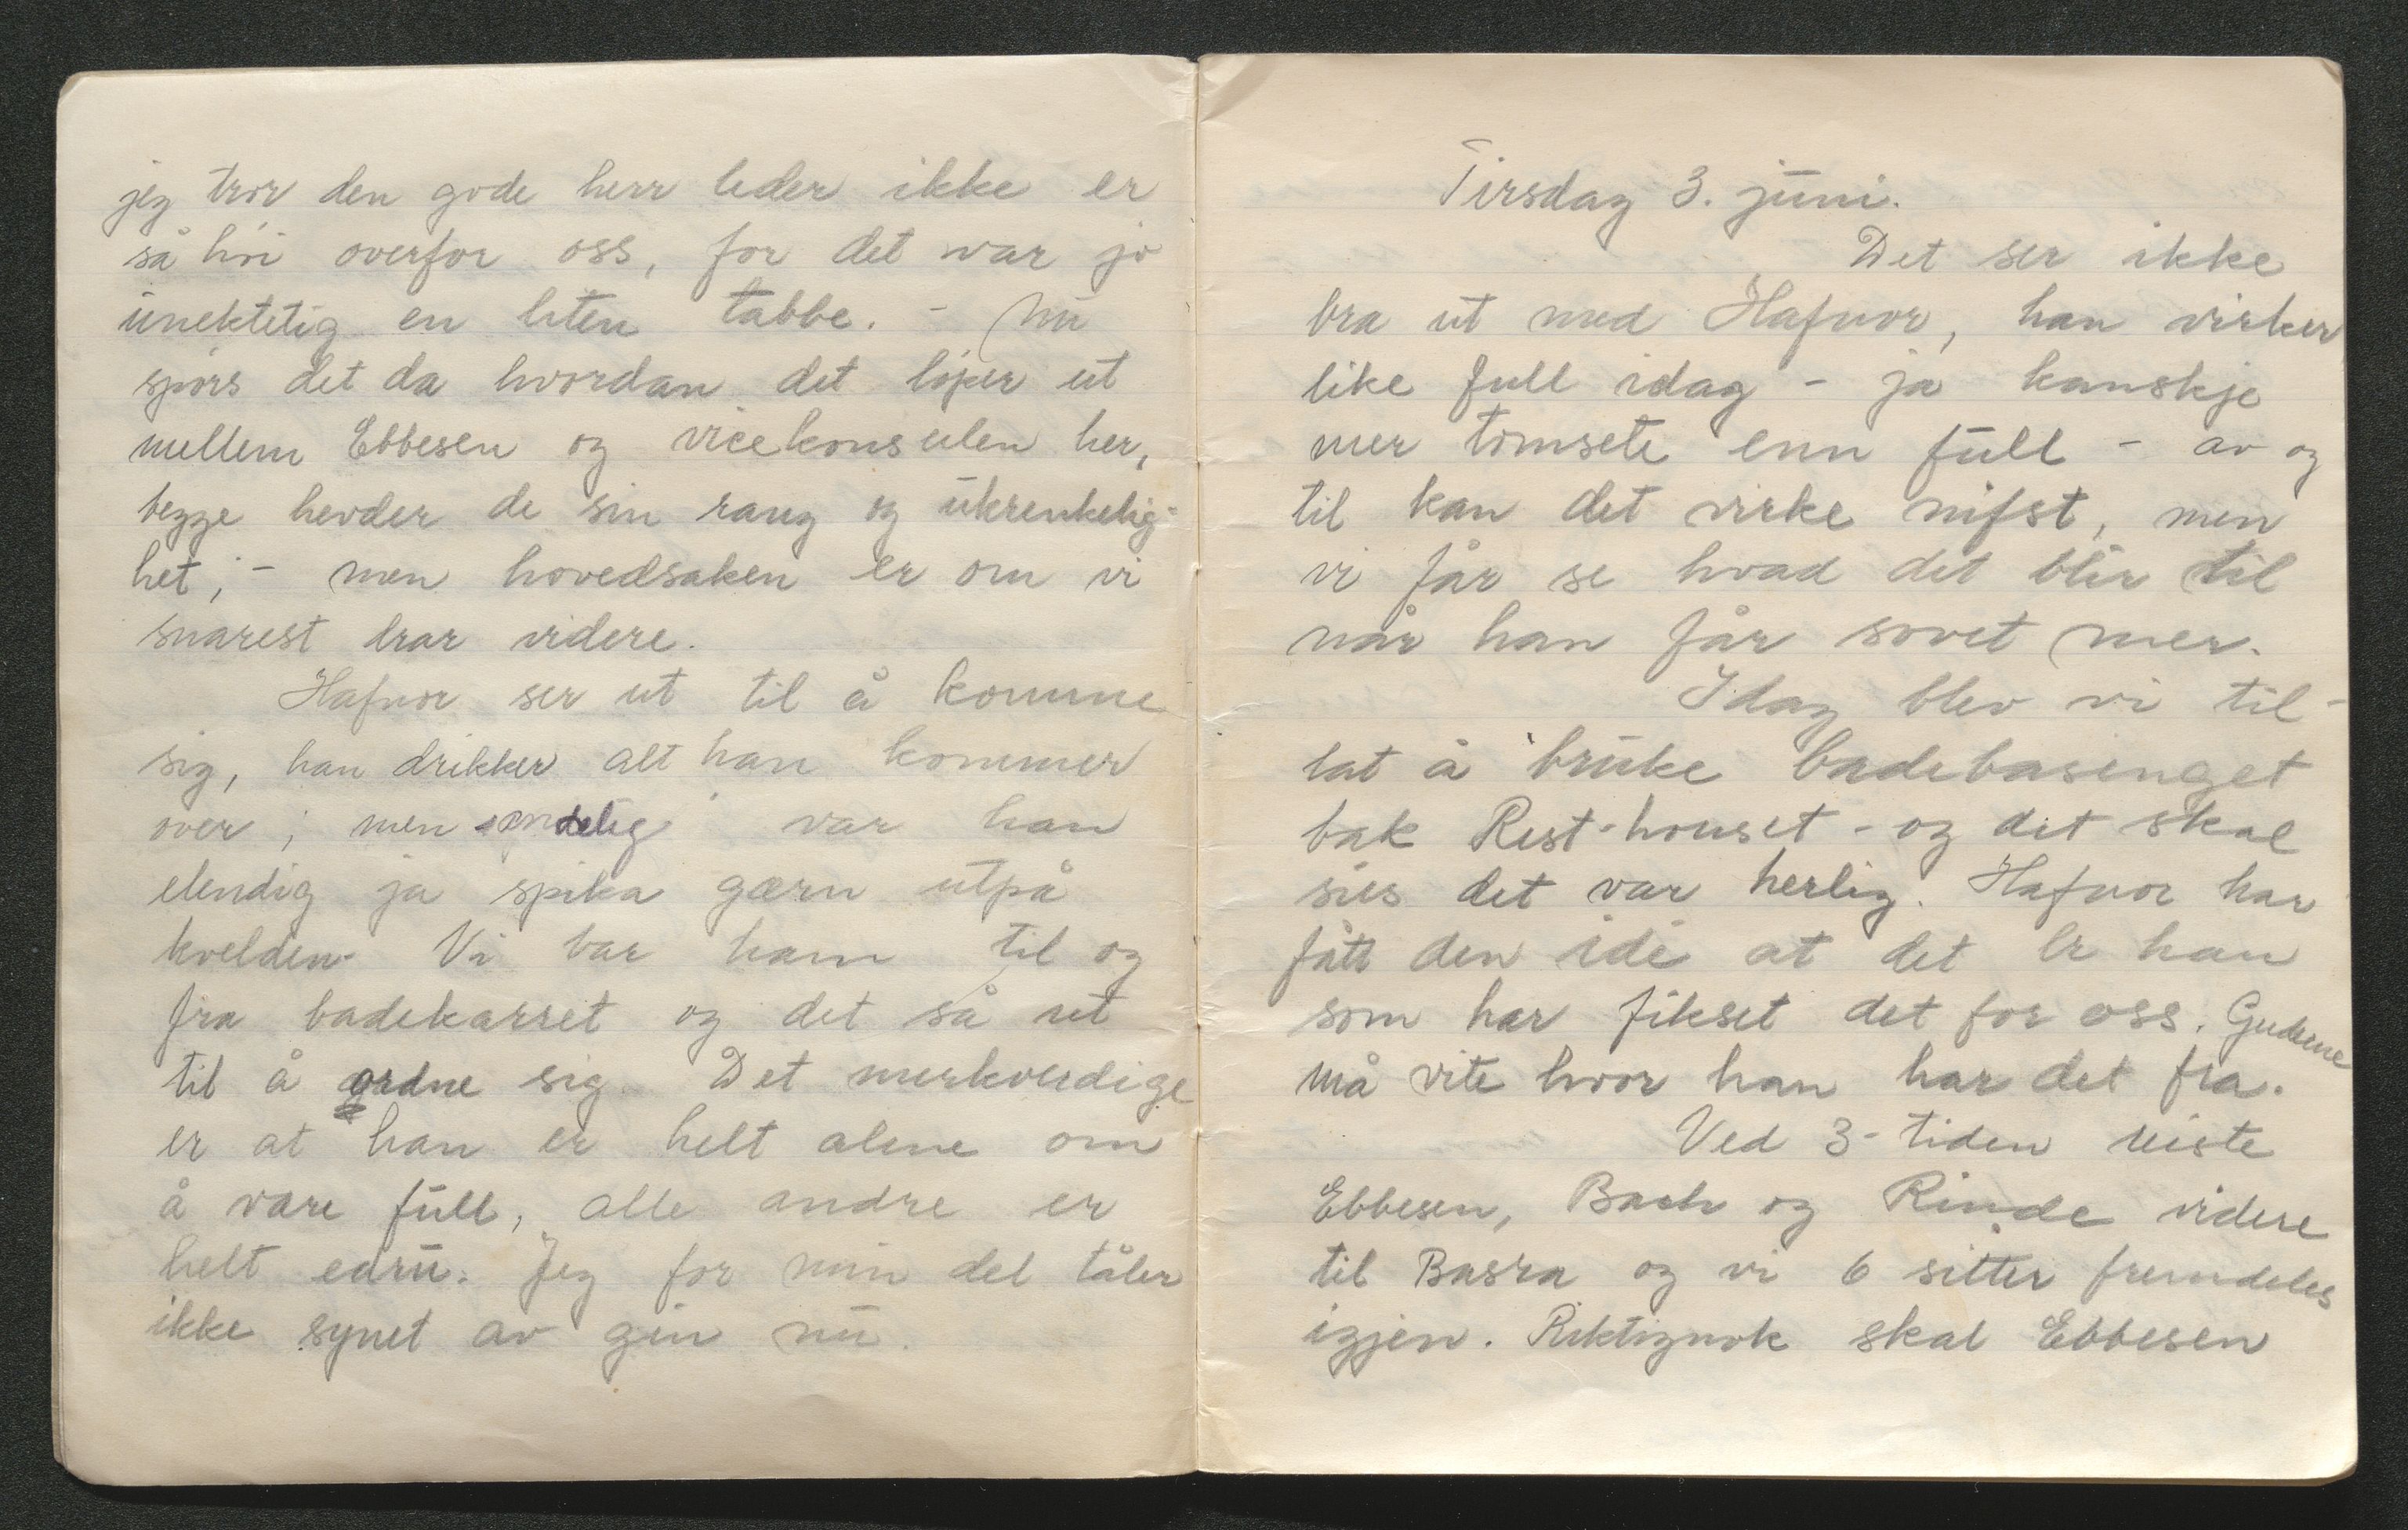 jeg tror den gode herr leder ikke er
så høi overfor oss, for det var jo
unektelig en liten tabbe. - Nu
spørs det da hvordan det løper ut
mellem Ebbesen og vicekonsulen her,
begge hevder de sin rang og ukrenkelig-
het; - men hovedsaken er om vi
snarest drar videre.
Hafnor ser ut til å komme
sig, han drikker alt han kommer
over; men var han
elendig ja spika gærn utpå
kvelden. Vi bar ham til og
fra badekarret og det så ut
til å ordne sig. Det merkverdige
er at han er helt alene om
å være full, alle andre er
helt edru. Jeg for min del tåler
ikke synet av gin nu.
Tirsdag 3. juni.
Det ser ikke
bra ut med Hafnor, han virker
like full idag - ja kanskje
mer tomsete enn full - av og
til kan det virke nifst, men
vi får se hvad det blir til
når han får sovet mer.
Idag blev vi til-
lat å bruke badebasenget
bak Rest-houset - og det skal
sies det var herlig. Hafnor har
fått den idé at det er han
som har fikset det for oss. Gudene
må vite hvor han har det fra.
Ved 3-tiden reiste
Ebbesen, Bach og Rinde videre
til Basra og vi 6 sitter fremdeles
igjen. Riktignok skal Ebbesen